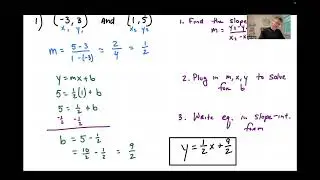 1) (-3, 3) And (1, 5)
x₁ y₁ x₂ y₂
m = 5-3 / 1-(-3) = 2/4 = 1/2
y = mx + b
5 = 1/2(1) + b
5 = 1/2 + b
-1/2 -1/2
b = 5 - 1/2
= 10/2 - 1/2 = 9/2
1. Find the slope
m = y₂-y₁ / x₂-x₁
2. Plug in m, x, y to solve
for b
3. Write eq. in slope-int.
form
y = 1/2x + 9/2